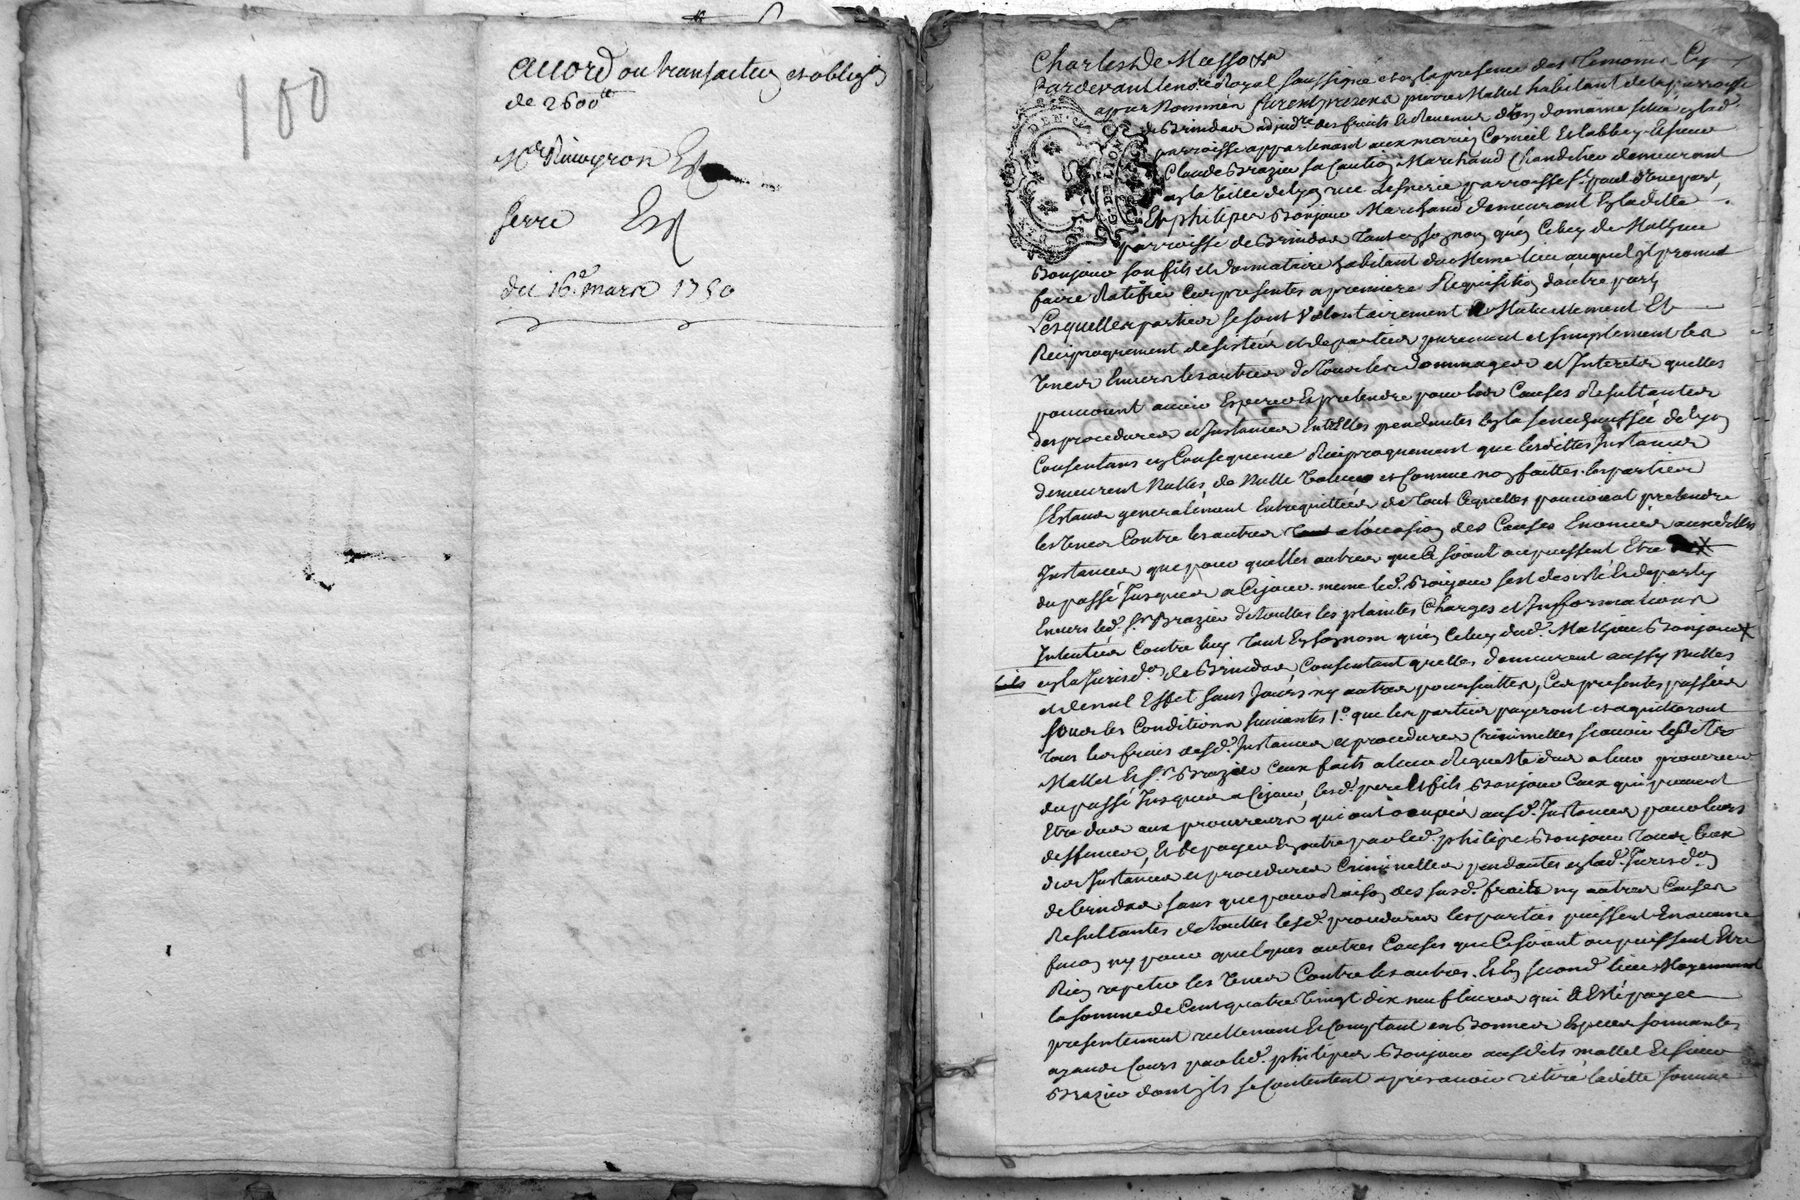 100
accord ou transaction et obligõn
de 2600 ᵗᵗ
Mr Rimoyron Est
serre Est
du 16e. mars 1750
Charles De Masso &a
Pardevant le nore Royal soussigné et en la presence des Temoins Cy
apres Nommés furent presens pierre Mallet habitant de la parroisse
de Brindas adjudre. des fruits et Revenus d'un domaine situé en lad.
parroisse appartenant aux mariés Corneil et labbey. Et sieur
Claude Brazier sa Caution Marchand Chandelier demeurant
en la Ville de Lyon rue parroisse St. paul d'une part,
Et philipes Bonjour Marchand demeurant en la ditte
parroisse de Brindas tant en son nom qu'en Celuy de Mathieu
Bonjour son fils et donnataire habitant du meme lieu auquel il promet
faire Ratifier Ces presentes a premiere Requisition d'autre part,
Lesquelles parties se sont Volontairement Mutuellement Et
Reciproquement desistées et departies purement et simplement les
Unes Envers les autres de tous les dommages et Interets quelles
pourroient avoir Esperer Et pretendre pour les Causes Resultantes
des procedures et Instances Entrelles pendantes en la senechaussée de Lyon
Consentans en Consequence Reciproquement que lesdittes Instances
demeurent Nulles de Nulle Valeur et Comme non faittes. les parties
s'Estans generalement Entrequittées de tout Ce quelles pourroient pretendre
les Unes Contre les autres a l'occasion des Causes Enoncées auxdittes
Instances que pour quelles autres que Ce soient ou puissent Etre
du passé Jusques a Cejour. meme led. Bonjour s'est desisté et departy
Envers led. Sr. Brazier de touttes les plaintes Charges et Informations
Intentées Contre luy tant En son nom qu'en Celuy dud. Mathieu Bonjour
fils en la Jurisdon. de Brindas, Consentant quelles demeurent aussy Nulles
et de nul Effet sans frais ny autres poursuittes, Ces presentes passées
sous les Conditions suivantes 1°. que les parties payeront et aquitteront
tous les frais desd. Instances et procedures Criminelles scavoir lesdits
Mallet et Sr. Brazier Ceux faits a leur Requette dus a leur procureur
du passé Jusques a Cejour, lesd. pere Et fils Bonjour Ceux qui peuvent
Etre dus aux procureurs qui ont occupés auxd. Instances pour leurs
deffences, Et de payer En outre par led. philipe Bonjour tous Ceux
des Instances et procedures Criminelles pendantes en lad. Jurisdon.
de brindas sans que pour Raison des susd. frais ny autres Causes
Resultantes de touttes lesd. procedures les parties puissent En aucune
facon ny pour quelques autres Causes que Ce soient ou puissent Etre
Rien repeter les Unes Contre les autres. Et En second lieu Moyennant
la somme de Cent quatre Vingt dix neuf livres qui a Eté payée
presentement reellement Et Comptant en Bonnes Especes sonnantes
ayans Cours par led. philipes Bonjour ausdits mallet Et sieur
Brazier dont ils se Contentent apres avoir retiré laditte somme